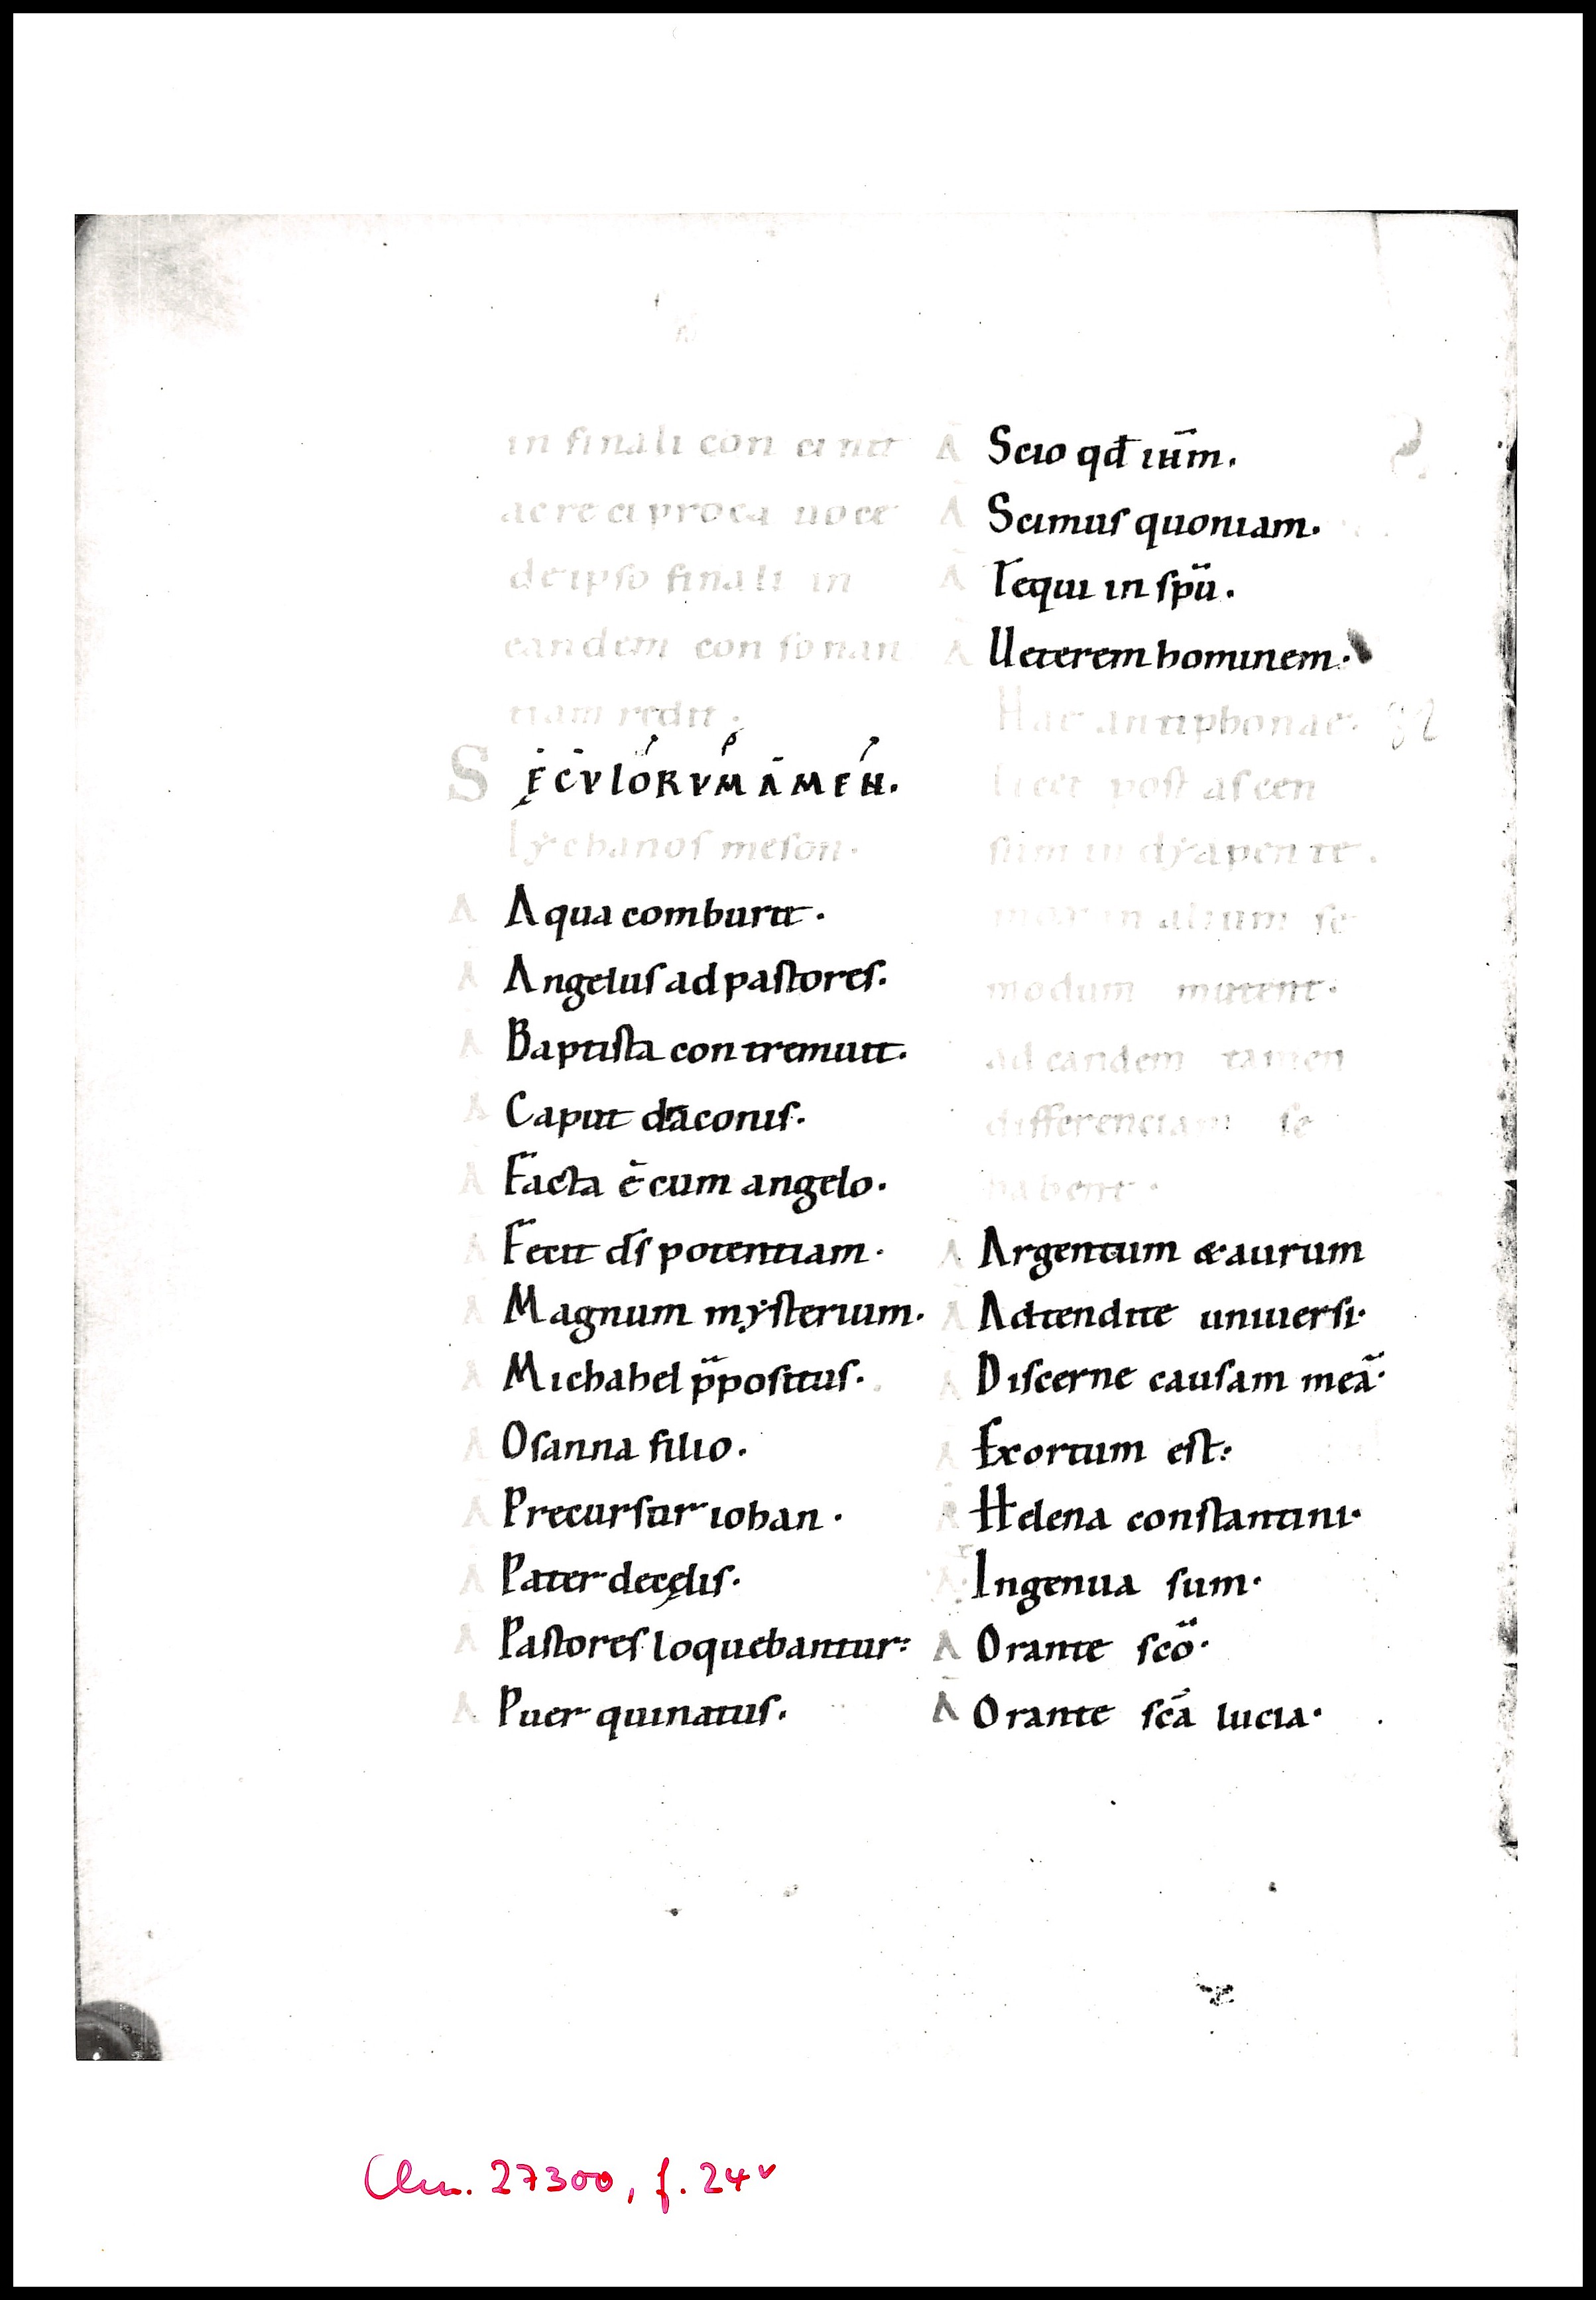 in finali concinit
ac reciproca uoce
de ipso finali in
eandem consonan
tiam redit.
SĘCVLORVM AMEN.
lẏchanos meson.
Ā Aqua comburit.
Ā Angelus ad pastores.
Ā Baptista contremuit.
Ā Caput dāconis.
Ā Facta ē cum angelo.
Ā Fecit d̄s potentiam.
Ā Magnum mẏsterium.
Ā Michahel p̄positus.
Ā Osanna filio.
Ā Precursur iohan.
Ā Pater decędis.
Ā Pastores loquebantur:
Ā Puer qui natus.
Ā Scio qđ ihm̄.
Ā Scimus quoniam.
Ā Te qui in sp̄u.
Ā Ueterem hominem.
Hae antiphonae.
licet post ascen
sum in dẏapente.
mox in alium se
modum mutent.
ad eandem tamen
differenciam se
habent.
Ā Argentum & aurum
Ā Adtendite uniuersi.
Ā Discerne causam meā.
Ā Exortum est:
Helena constantini.
Ingenua sum.
Ā Orante sc̄o.
Ā Orante sc̄a lucia.
Clm. 27300, f. 24v